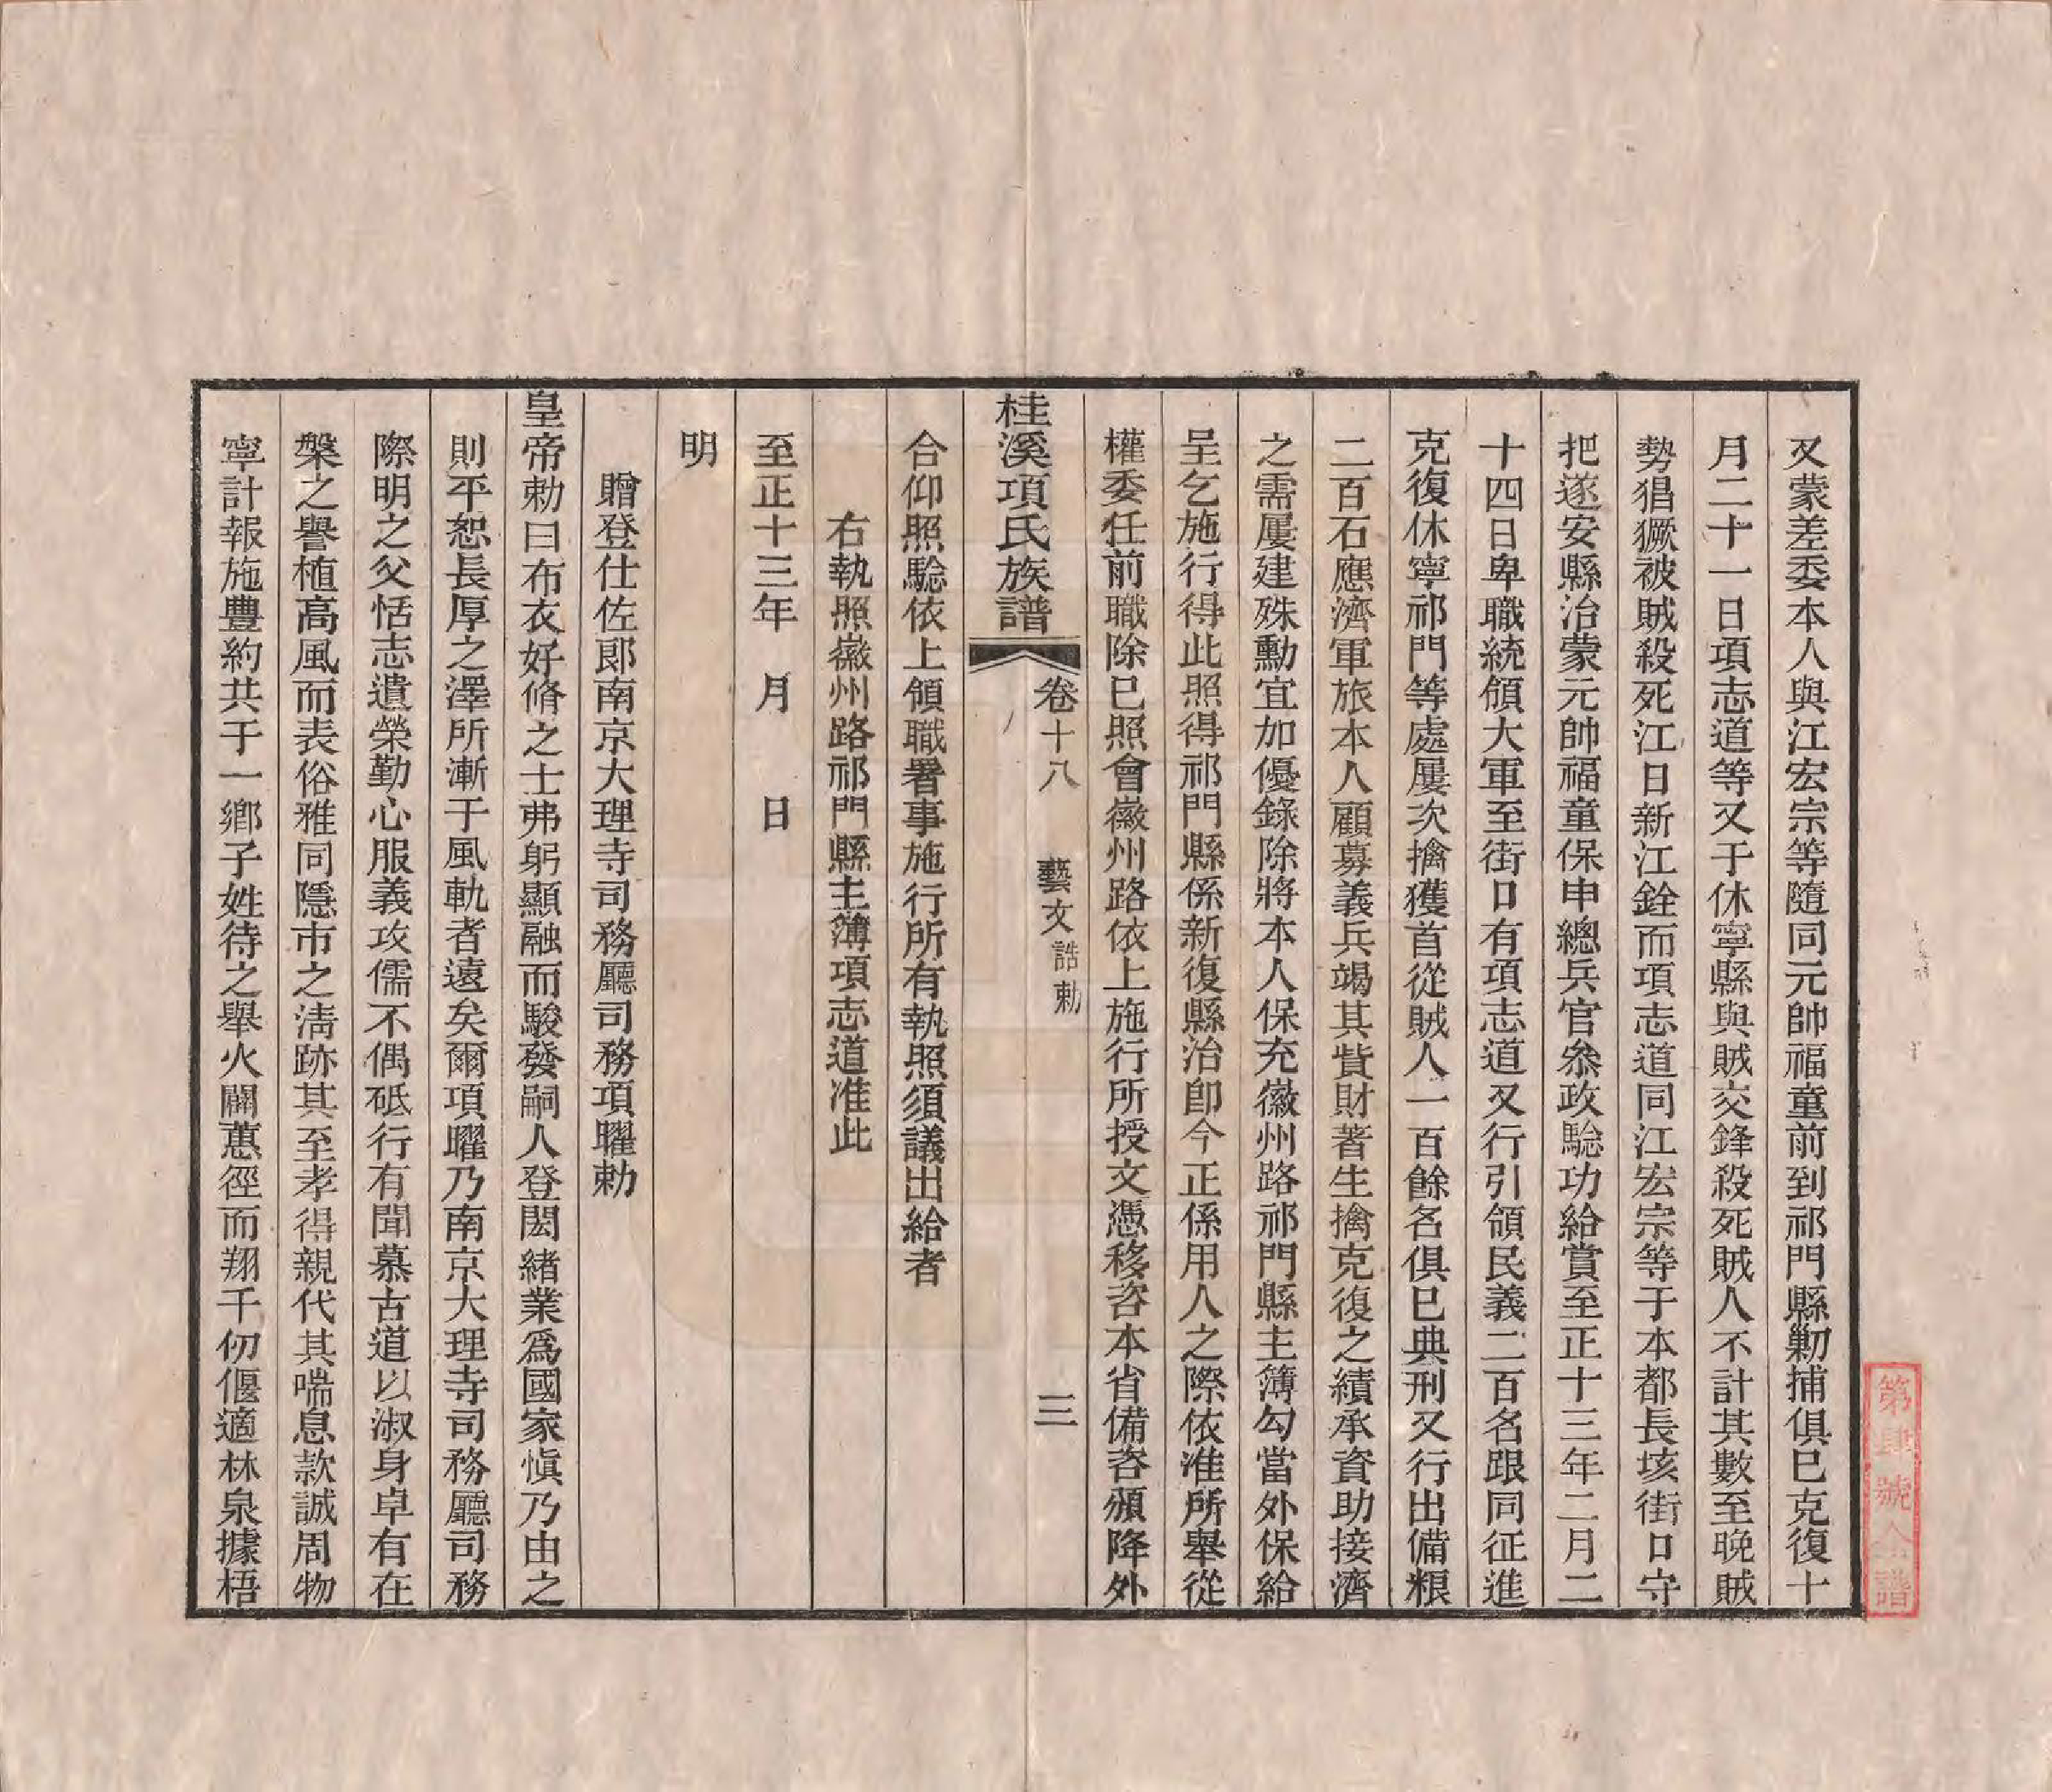 又蒙差委本人與江宏宗等隨同元帥福童前到祁門縣勦捕俱已克復十
月二十一日項志道等又于休寧縣與賊交鋒殺死賊人不計其數至晚賊
勢猖獗被賊殺死江日新江銓而項志道同江宏宗等于本都長垓街口守
把遂安縣治蒙元帥福童保申總兵官叅政驗功給賞至正十三年二月二
十四日卑職統領大軍至街口有項志道又行引領民義二百名跟同征進
克復休寧祁門等處屢次擒獲首從賊人一百餘名俱已典刑又行出備粮
二百石應濟軍旅本人顧募義兵竭其貲財著生擒克復之績承資助接濟
之需屢建殊勳宜加優錄除將本人保充徽州路祁門縣主簿勾當外保給
呈乞施行得此照得祁門縣係新復縣治卽今正係用人之際依准所舉從
權委任前職除已照會徽州路依上施行所授文憑移咨本省備咨頒降外
桂溪項氏族譜 卷十八 藝文 誥勅 三
合仰照驗依上領職署事施行所有執照須議出給者
右執照徽州路祁門縣主簿項志道准此
至正十三年 月 日
明
贈登仕佐郎南京大理寺司務廳司務項曜勅
皇帝勅曰布衣好脩之士弗躬顯融而駿發嗣人登閎緒業爲國家愼乃由之
則平恕長厚之澤所漸于風軌者遠矣爾項曜乃南京大理寺司務廳司務
際明之父恬志遺榮勤心服義攻儒不偶砥行有聞慕古道以淑身卓有在
槃之譽植高風而表俗雅同隱市之淸跡其至孝得親代其喘息款誠周物
寧計報施豐約共于一鄉子姓待之舉火闢蕙徑而翔千仞偃適林泉據梧
第肆號全譜